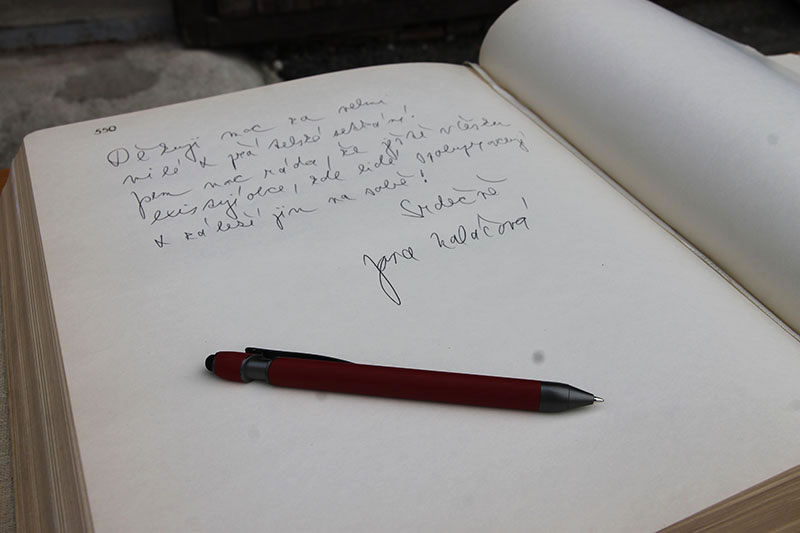 550
Děkuji moc za velmi
milé a přátelské setkání!
Jsem moc ráda, že ještě v Česku
existují obce, kde lidé spolupracují
a záleží jim na sobě!
Srdečně
Jana